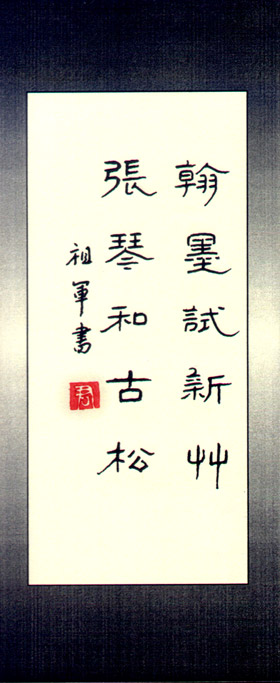 翰墨試新艸
張琴和古松
祖軍書